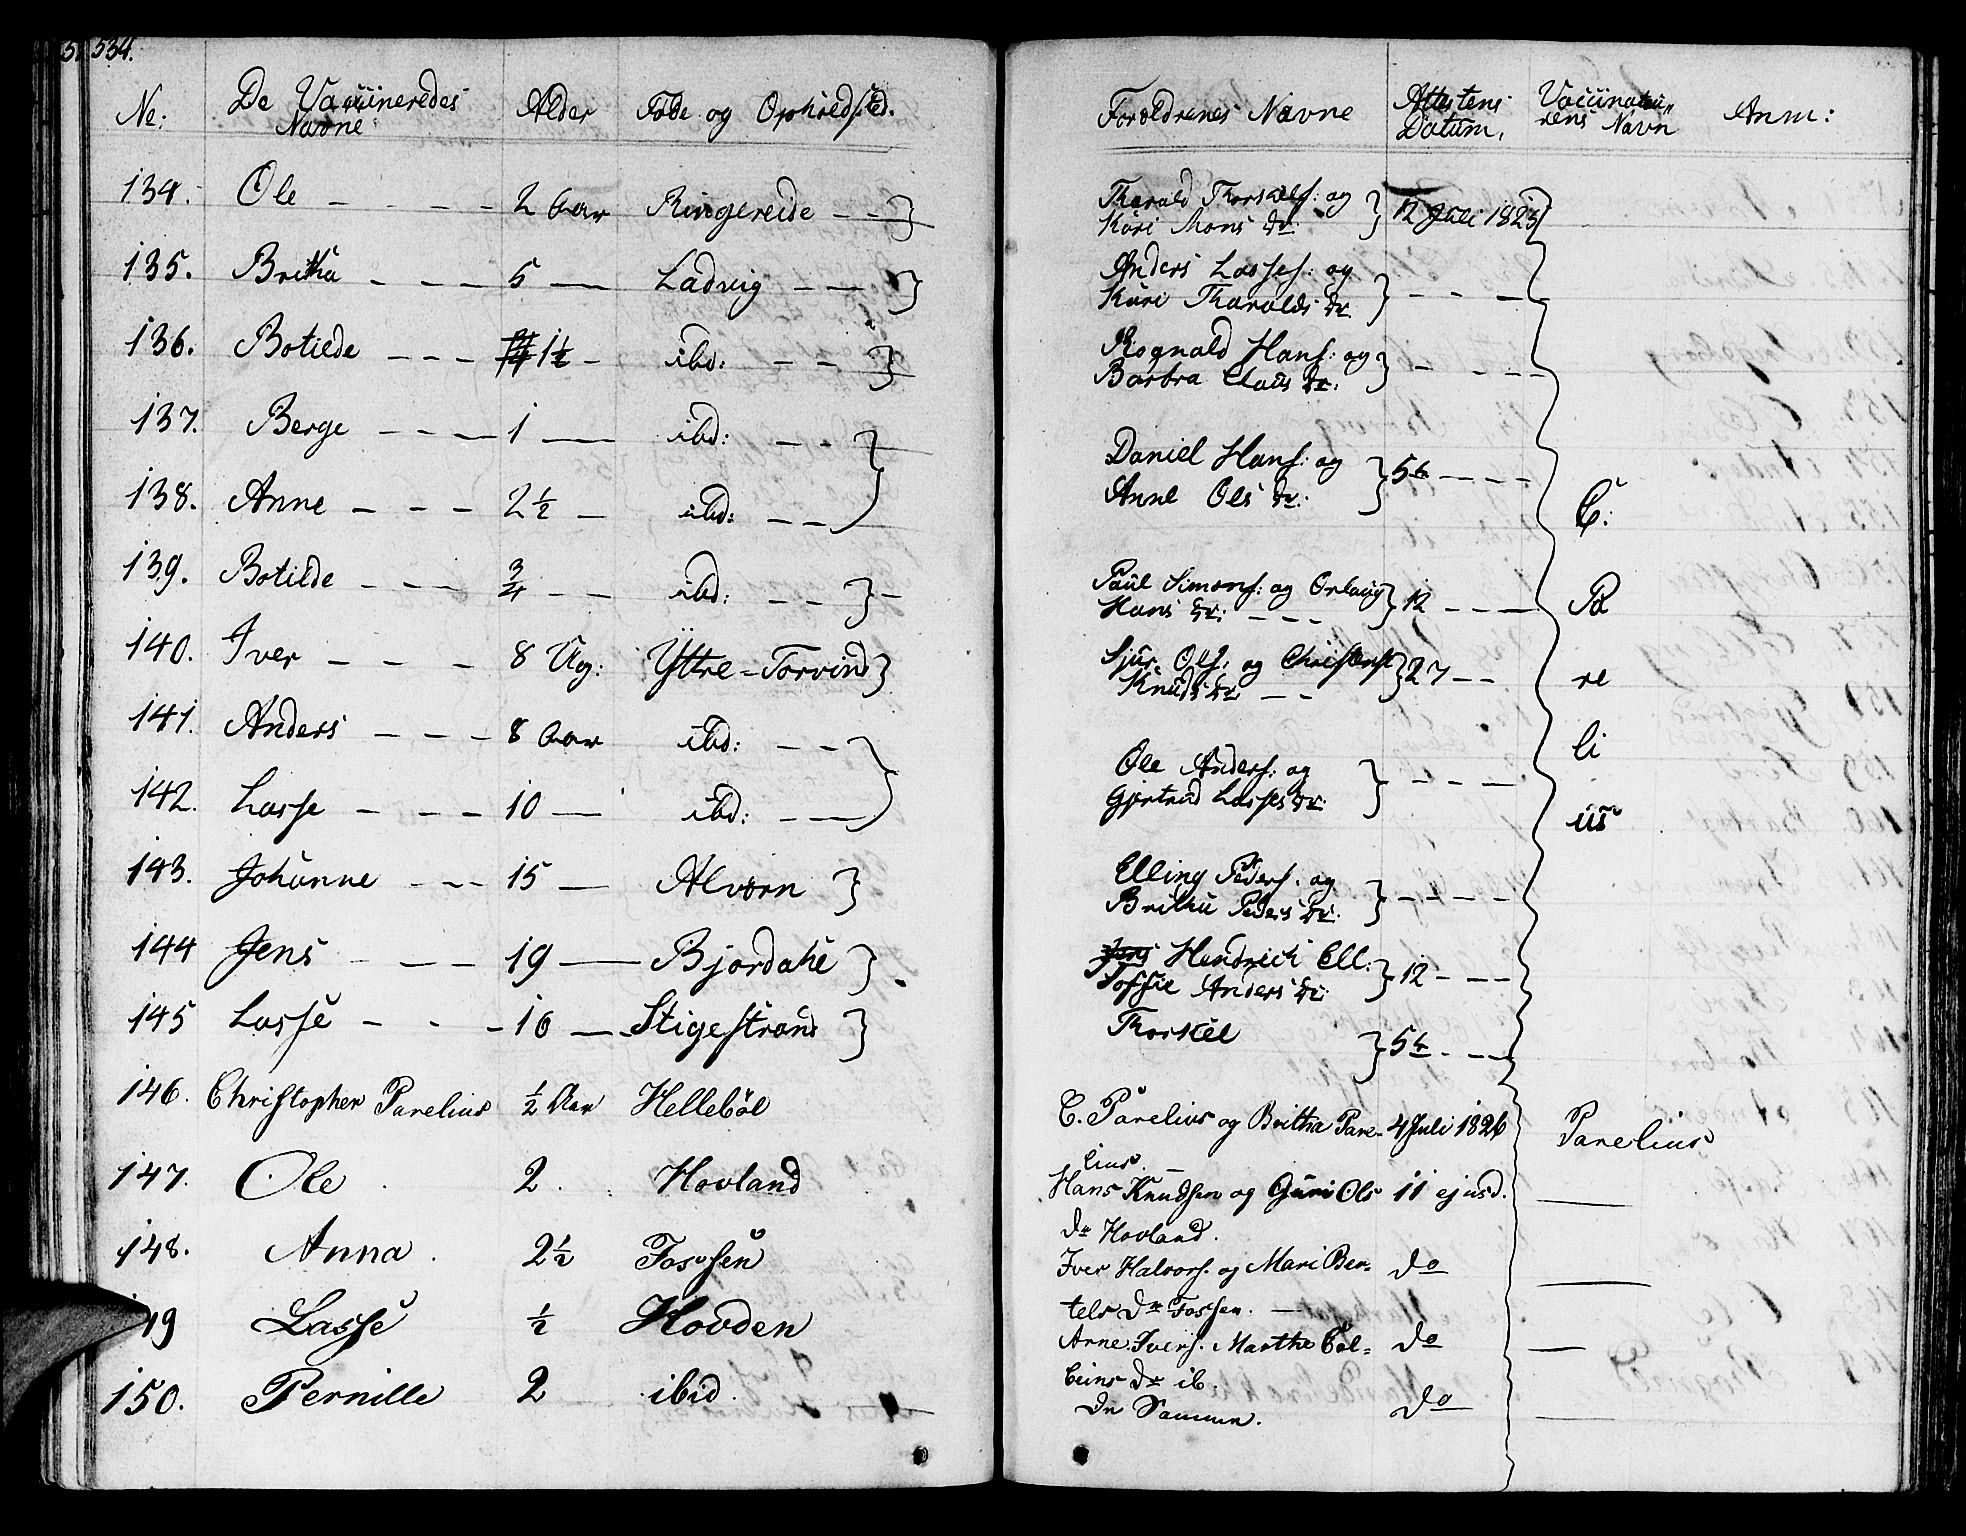 534.
No: De Vaccineredes Navne Alder Føde og Opholdssted. Forældrenes Navne Attestens Datum, Vaccinateurens Navn Anm:
134. Ole - - - - 2 Aar Ringereide - - } Tharald Thorkels: og
Kari Mons dr. } 12 Juli 1823
135. Britha - - - 5 — Ladvig - — } Anders Lasses: og
Kari Tharalds dr } - - —
136. Botilde - - - 1½ - ibd: - - } Rognald Hans: og
Barbra Claus dr. } - - - -
137. Berge - - — 1 — ibd: - - } Daniel Hans: og
138. Anne - - - 2½ — ibd: - - Anne Ols dr: } 5t - - - - C.
139. Botilde - - - ¾ - - ibd: - - } - Paul Simons: og Orlaug
Hans dr: - - - } 12 - - — Pa
140. Iver - - - 8 Ug: Yttre-Torvind } Sjur Ols: og Christense
Knuds dr - - } 27 - - re
141. Anders - - - 8 Aar ibd: - - } Ole Anders: og
142. Lasse - - - 10 — ibd: - — Gjertrud Lasses dr. } - - - - li
us
143. Johanne - - - 15 — Alværn } Elling Peders. og
Britha Peders dr. } - - - -
144 Jens - — — 19 — Bjordahl } Hendrich Ell:
Anders dr: } 12 - - -
145 Lasse - - - 16 — Stigestrand } Thorkel } 5t. - - -
146. Christopher Parelius ½ Aar Hellebøl C. Parelius og Britha Pare- 4 Juli 1826 Parelius
lius. —
147. Ole . 2 . . Hovland Hans Knudsen og Guri Ols 11 ejusd. —
dr Hovland.
148. Anna . 2½ Fossen Iver Halvors. og Mari Ber- do —
tels dr Fossen. —
149 Lasse ½ Hovden Arne Ivers. Marthe Col- do —
beins dr ib.
150. Pernille 2 ibid. De Samme. do —